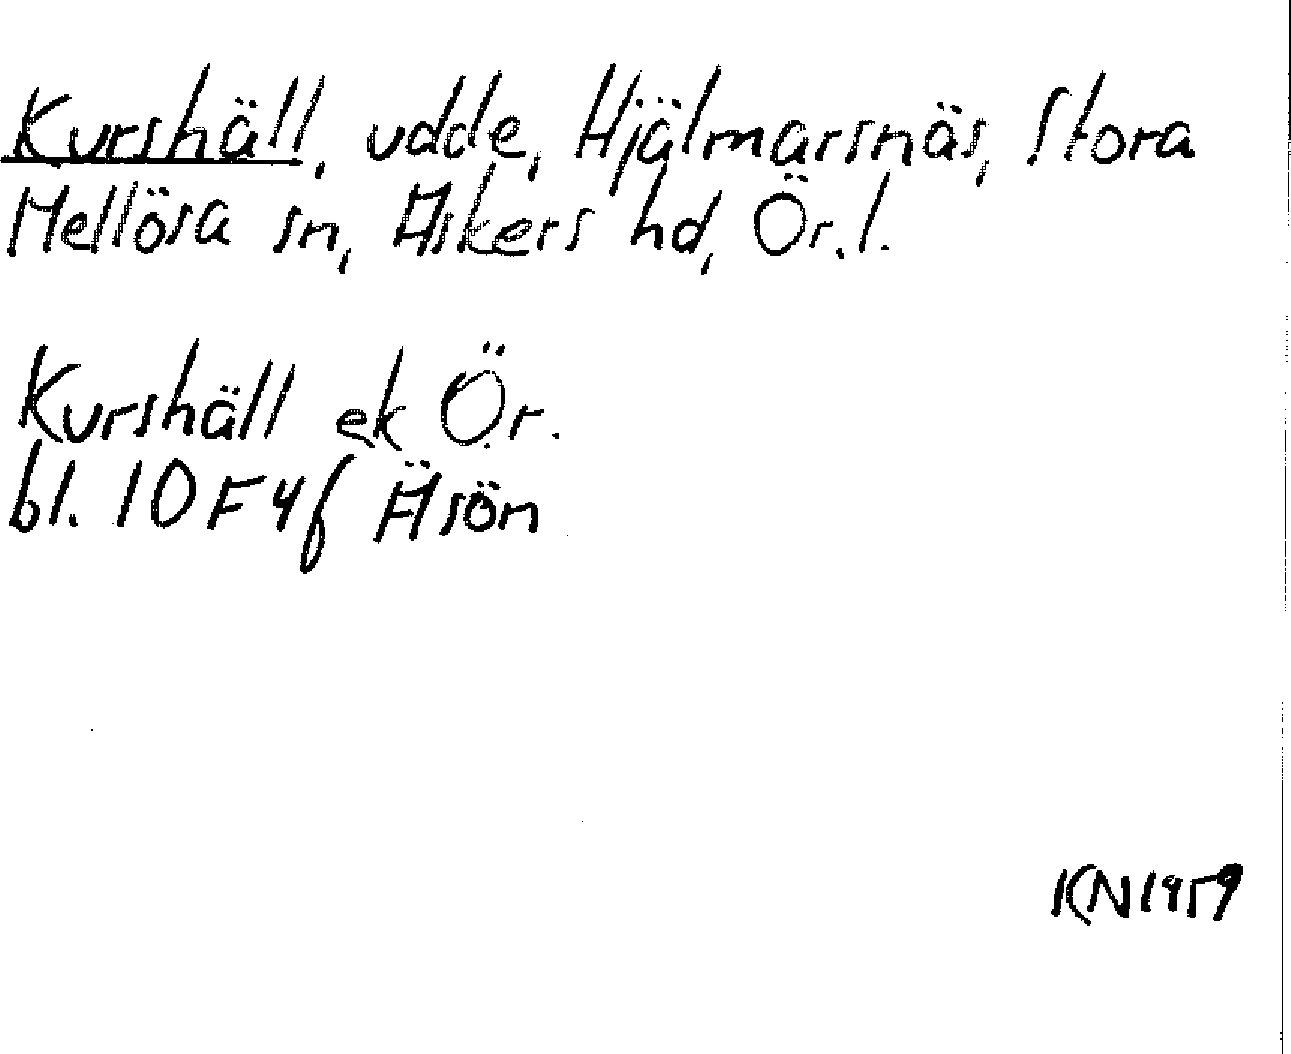 Kurshäll, udde, Hjälmarsnäs, Stora
Mellösa sn, Askers hd, Ör. l.
Kurshäll ek Ör.
bl. 10F4f Äsön
KN1959